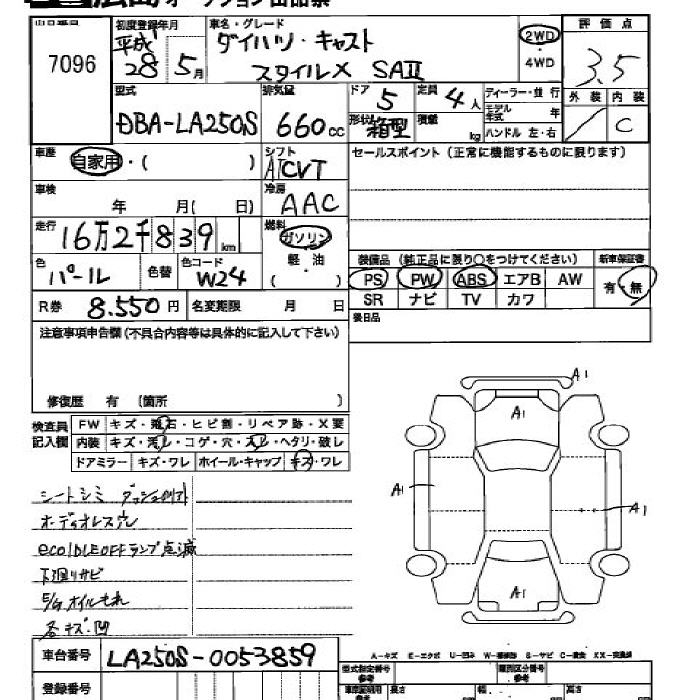 オークション出品票
出品番号 初度登録年月 車名・グレード 評価点
7096 平成 28年 5月 ダイハツ・キャスト 2WD 3.5
スタイルX SAII ・4WD
型式 排気量 ドア 定員 ディーラー・並行 外装 内装
DBA-LA250S 660cc 5 4人 モデル年式 年 C
形状 箱型 積載 kg ハンドル 左・右
車歴 自家用・( ) シフト セールスポイント (正常に機能するものに限ります)
AT CVT
車検 年 月( 日) 冷房 AAC
走行 16万2千839km 燃料 ガソリン
軽・油
( )
色 パール 色替 色コード W24 装備品 (純正品に限り○をつけてください) 新車保証書
PS PW ABS エアB AW 有・無
R券 8.550円 名変期限 月 日 SR ナビ TV カワ
注意事項申告欄(不具合内容等は具体的に記入して下さい) 後日品
修復歴 有 (箇所 )
検査員記入欄 FW キズ・飛石・ヒビ割・リペア跡・X要
内装 キズ・汚レ・コゲ・穴・スレ・ヘタリ・破レ
ドアミラー キズ・ワレ ホイール・キャップ キズ・ワレ
A1
A1
A1
A1
A1
シートシミ
オーディオレス穴
eco IDLE OFFランプ点滅
下廻りサビ
E/g オイルもれ
各キズ.凹
A-キズ E-エクボ U-凹み W-補修跡 S-サビ C-腐食 XX-交換済
車台番号 LA250S-0053859
型式指定番号 参考 類別区分番号 参考
登録番号 長さ 幅 高さ